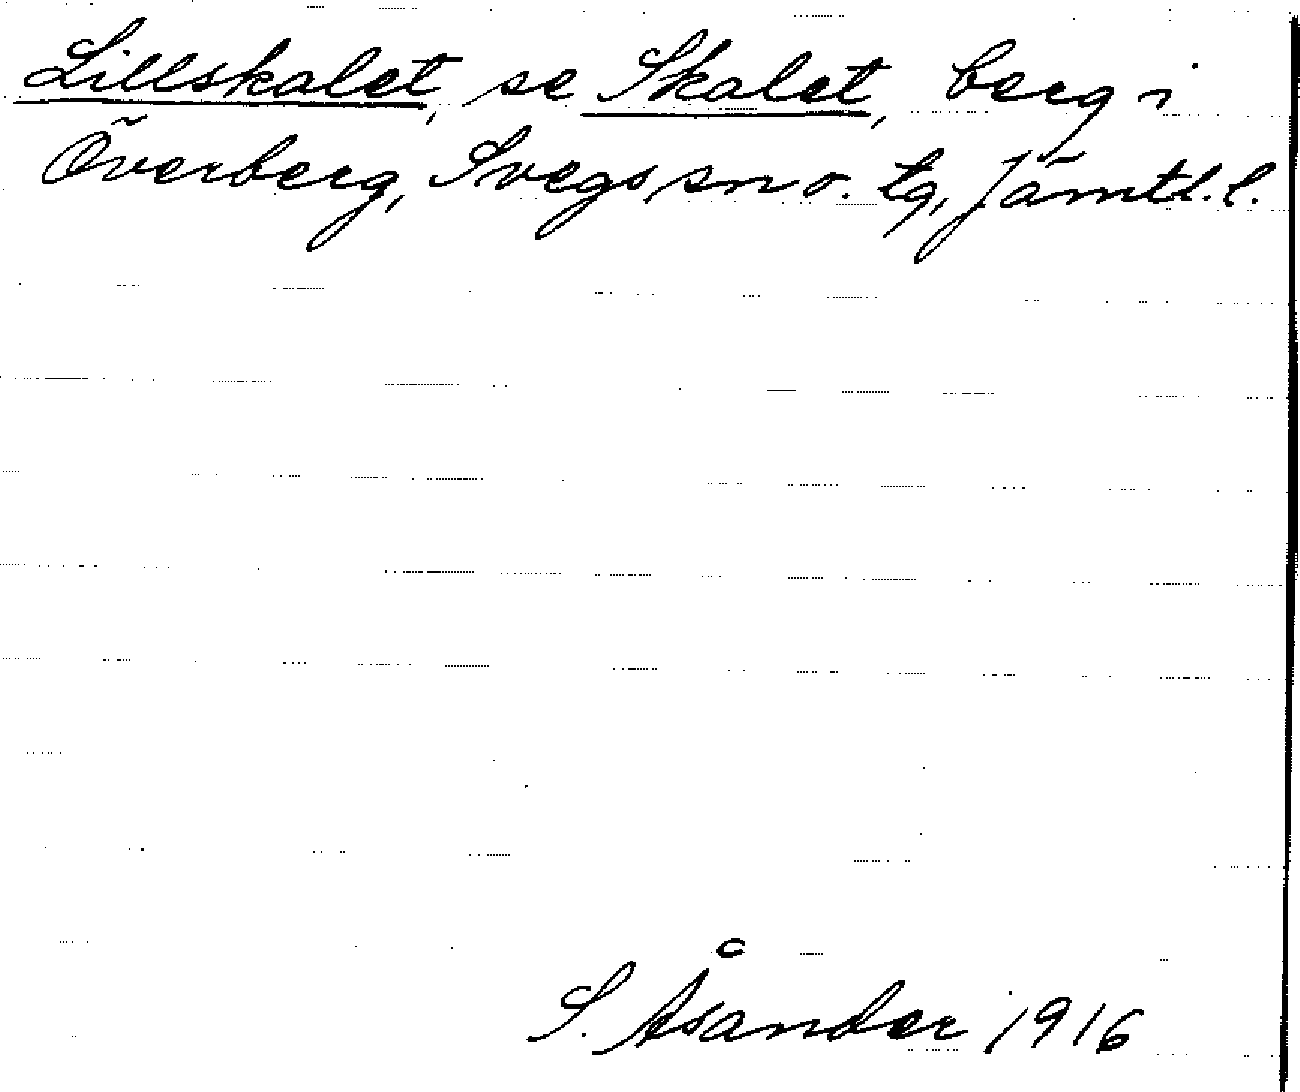 Lillskalet, se Skalet, berg i
Överberg, Svegs sn o. tg, Jämtl. l.
S. Åsander 1916